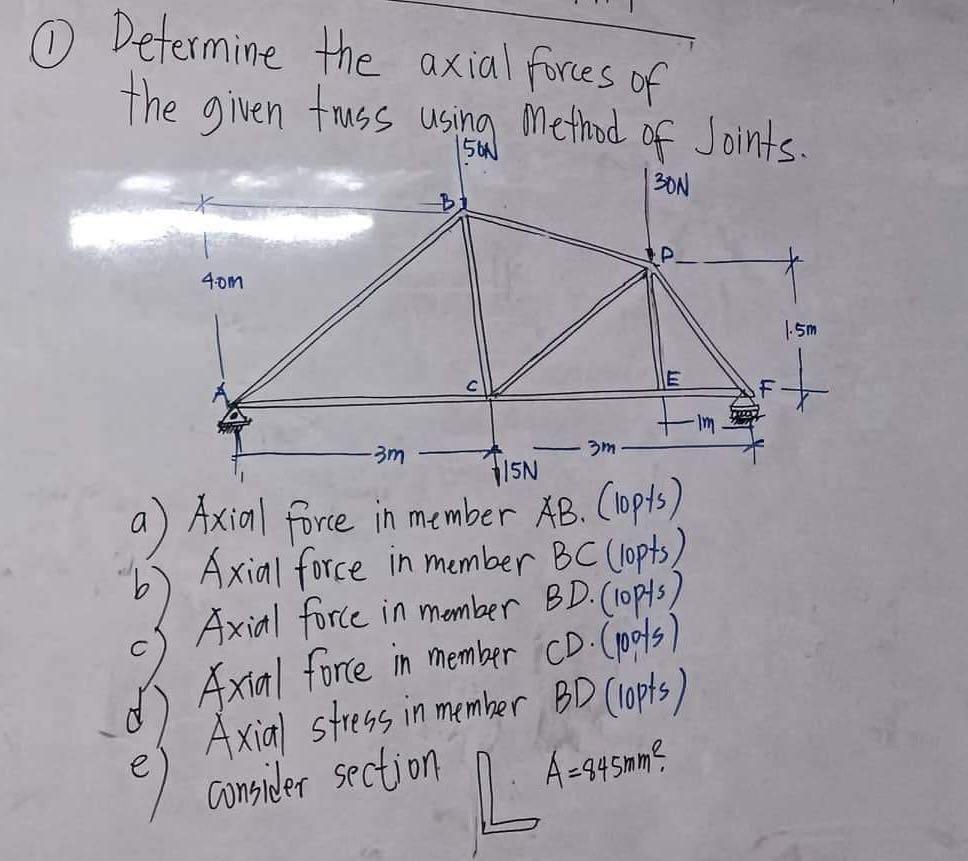 ① Determine the axial forces of
the given truss using Method of Joints.
50N
30N
B
D
4.0m
1.5m
A
C
E
F
1m
3m
3m
15N
a) Axial force in member AB. (10pts)
b) Axial force in member BC (10pts)
c) Axial force in member BD. (10pts)
d) Axial force in member CD. (10pts)
e) Axial stress in member BD (10pts)
consider section
A=845mm².